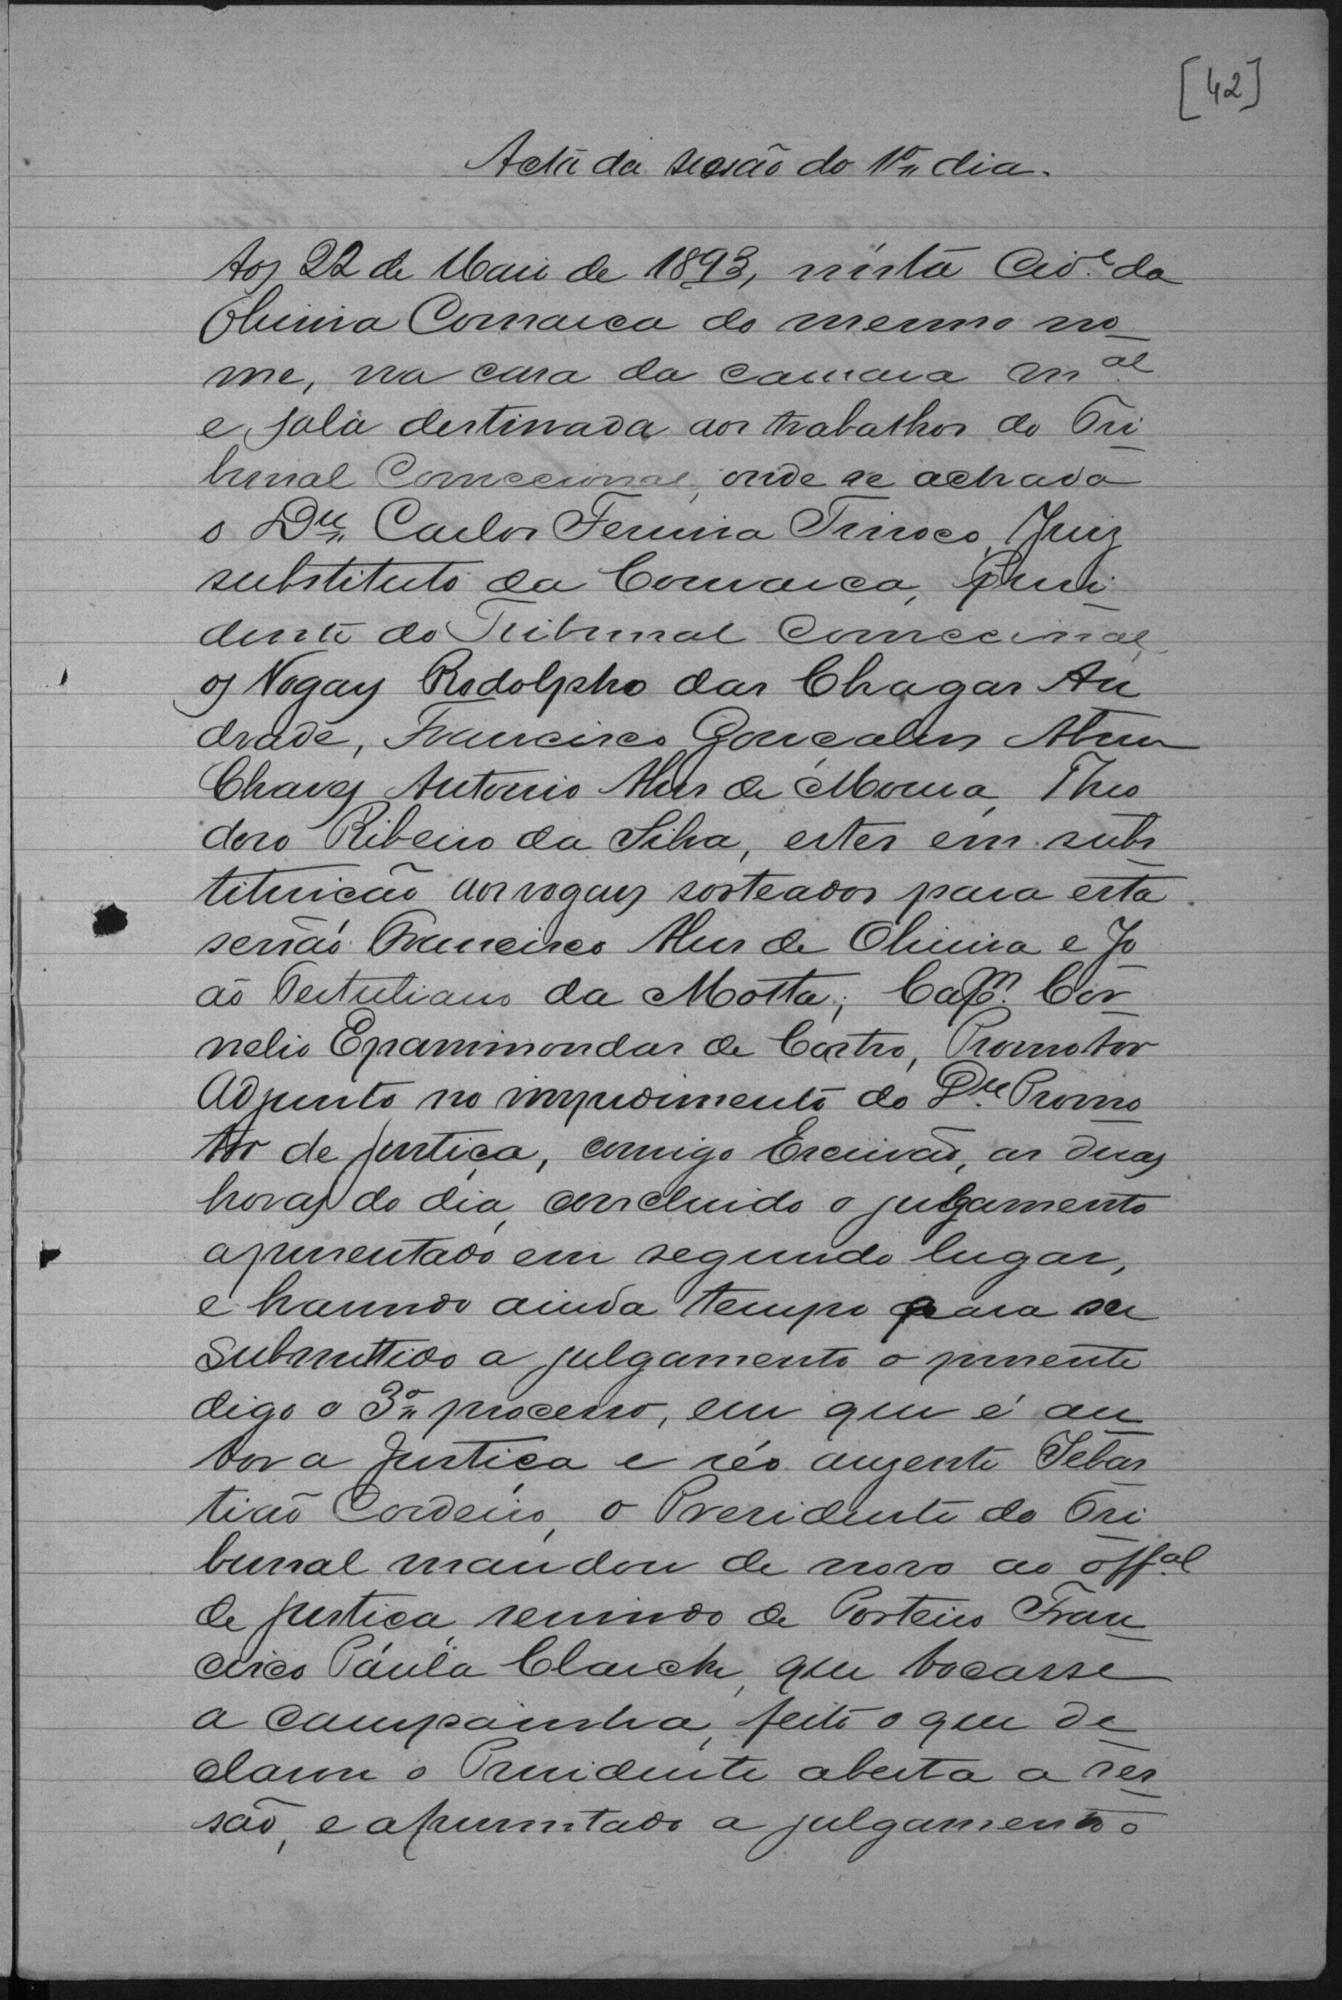 [42]
Acta da sessão do 1º dia.
Aos 22 de Maio de 1893, n'esta Cid.e da
Oliveira Comarca do mesmo no
me, na casa da camara m.al
e sala destinada aos trabalhos do Tri
bunal Correccional, onde se achava
o Dr. Carlos Ferreira Tinoco, Juiz
substituto da Comarca, Presi
dente do Tribunal Correccional,
os Vogaes Rodolpho das Chagas An
drade, Francisco Gonçalves
Chaves Antonio Alves de Moura, Theo
doro Ribeiro da Silva, estes em subs
tituição aos vogaes sorteados para esta
sessão Francisco Alves de Oliveira e Jo
ão Tertuliano da Motta; Cap.m Cor
nelio Epaminondas de Castro, Promotor
Adjunto no impedimento do Dr. Promo
tor de justiça, comigo Escrivão, as duas
horas do dia, concluido o julgamento
apresentado em segundo lugar,
e havendo ainda tempo para ser
submettido a julgamento o presente
digo o 3º processo, em que é au
tor a Justiça e réo auzente Sebas
tião Cordeiro, o Presidente do Tri
bunal mandou de novo ao off.al
de justiça servindo de Porteiro Fran
cisco Paula Clarck, que tocasse
a campainha, feito o que de
clarou o Presidente aberta a ses
são, e apresentado a julgamento o